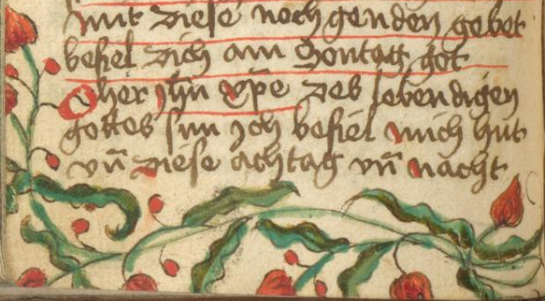 mit diese nochgenden gebet
befiel dich am Sontag got
O her ihū xp̄e des lebendigen
gottes sun Ich befiel mich hut
vn̄ diese achtag vn̄ nacht